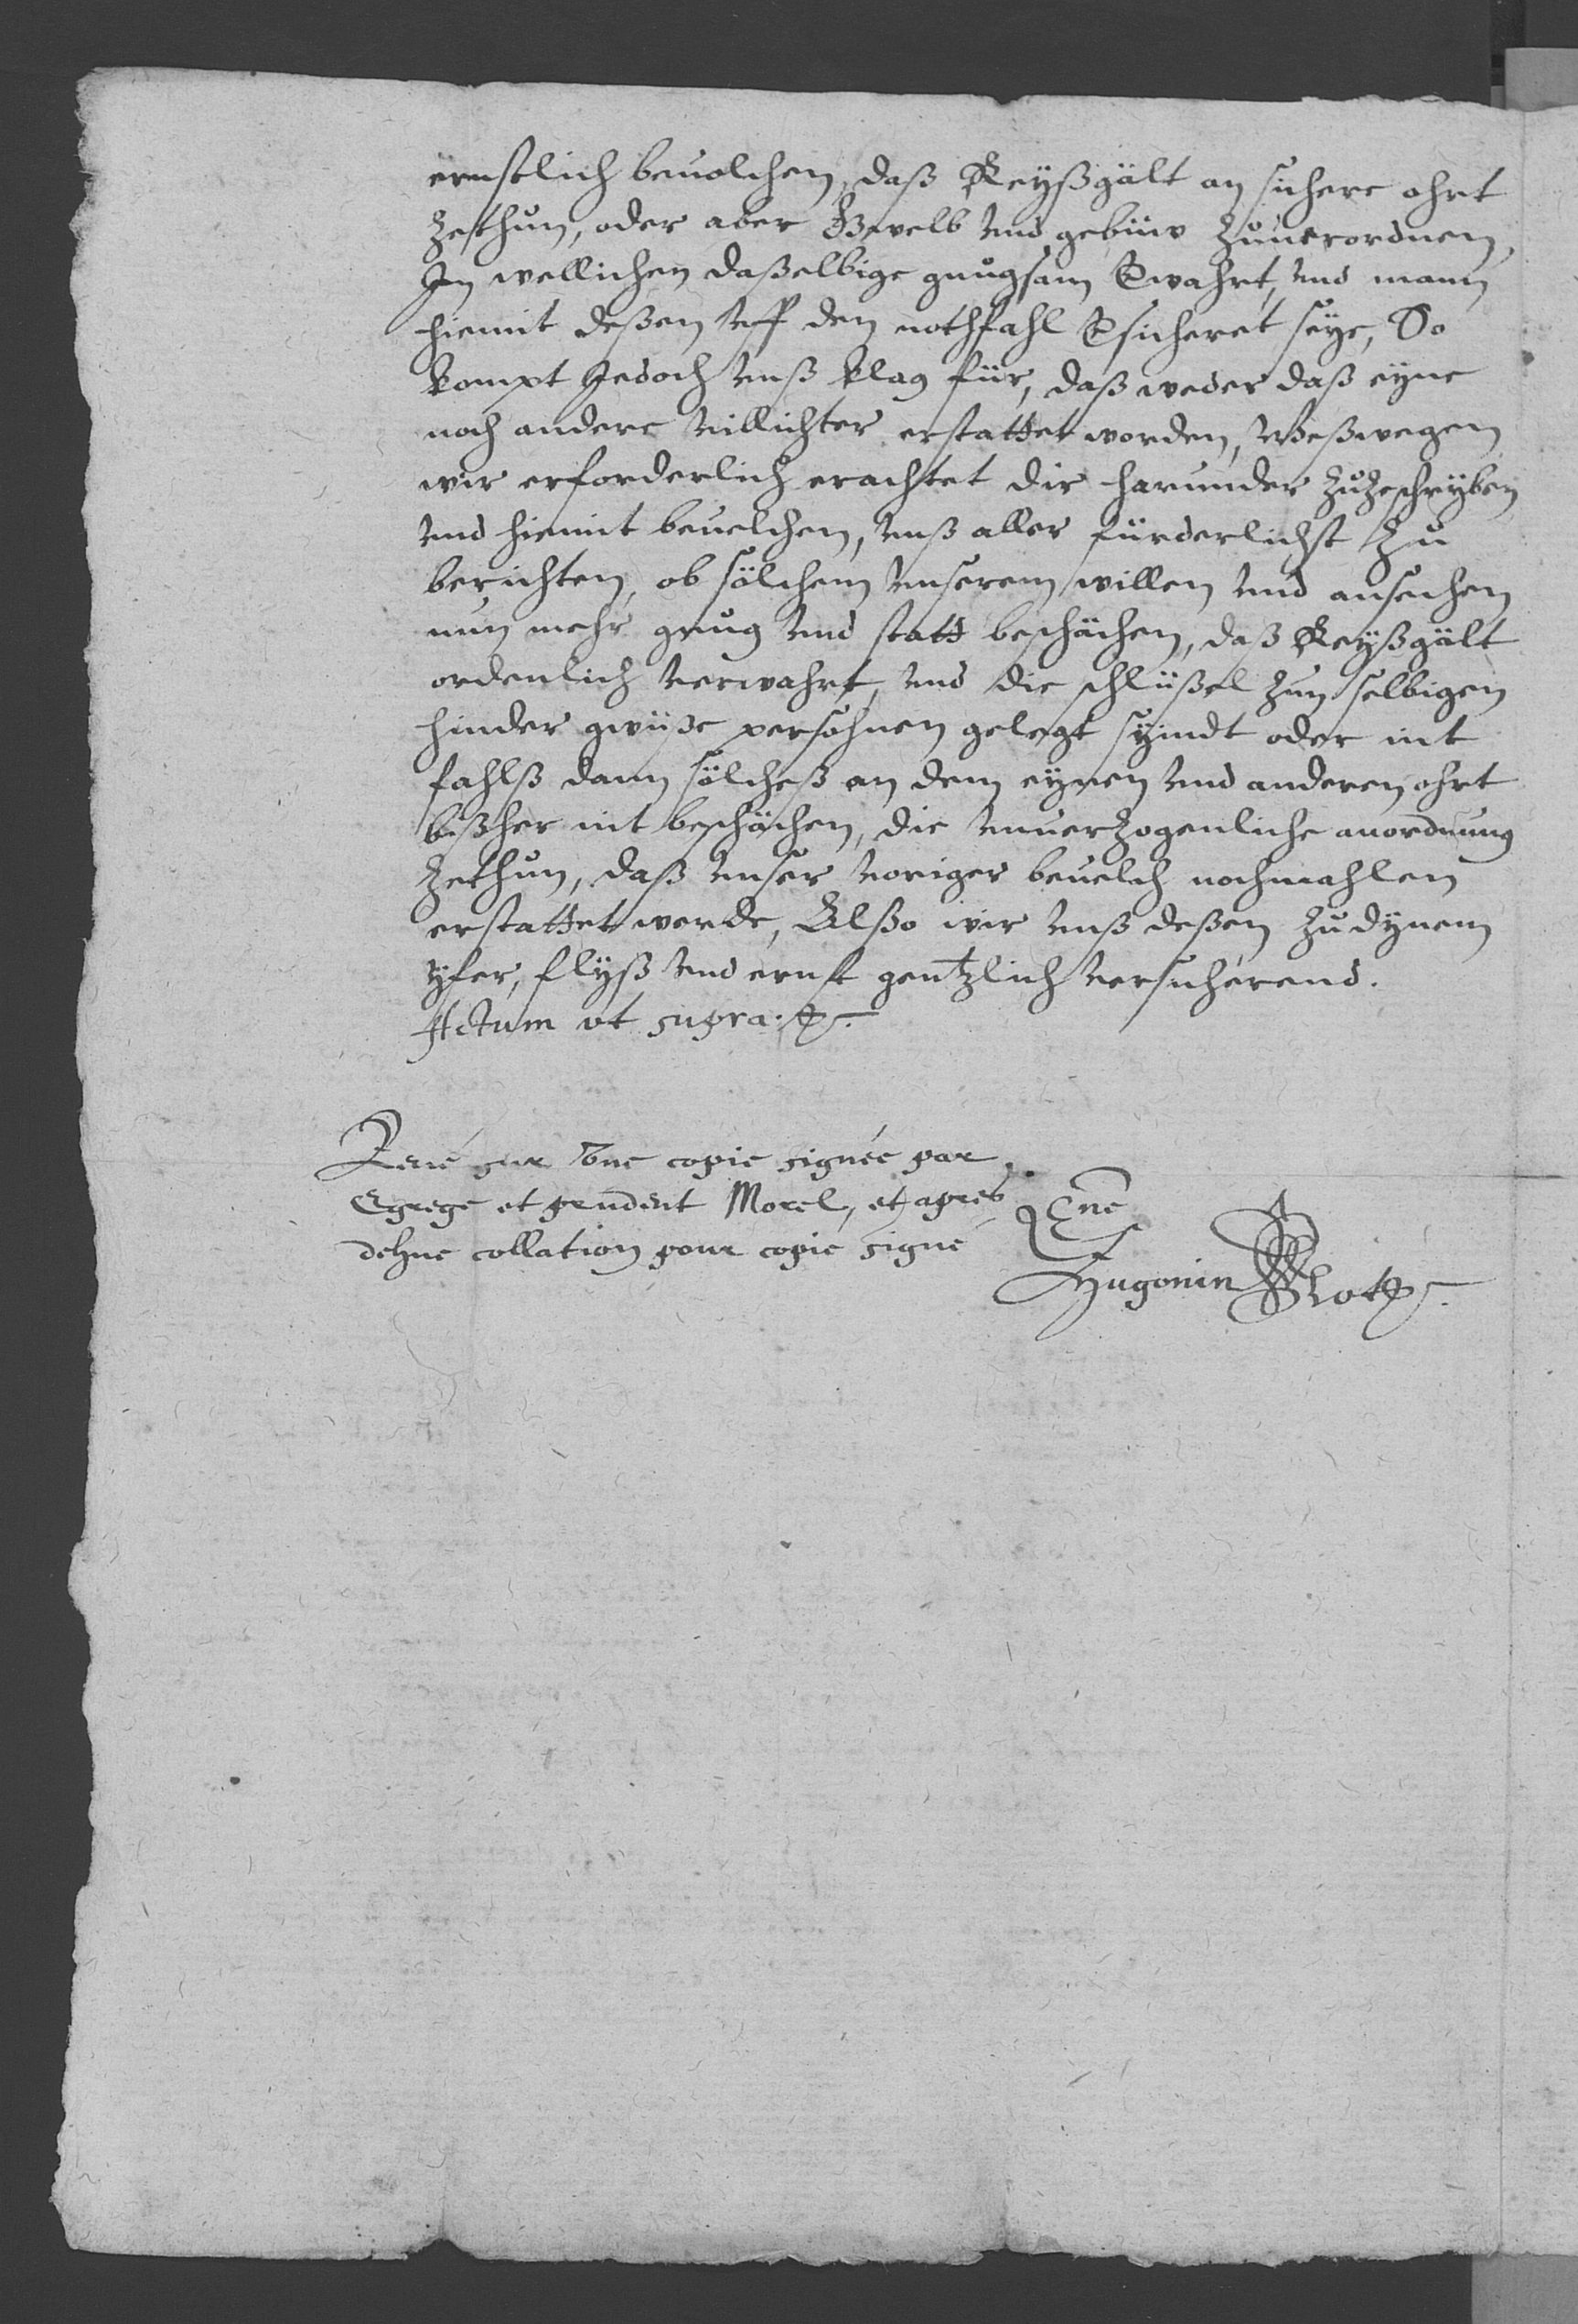 ernstlich beuolchen, daß Reyßgält an sichere ohrt
zethun, oder aber Gwelb vnd gebüw zuuerordnen,
Jn wellichen daßelbige gnugsam verwahrt, vnd mann
hiemit deßen vff den nothfahl versicheret seye, So
kompt Jedoch vnß klag für, daß weder daß eyne
noch andere villichter erstattet worden, Weßwegen
wir erforderlich erachtet dir harunder zuzeschryben
vnd hiemit beuelchen, vnß aller fürderlichst zu
berichten, ob sölchem vnserem willen vnd ansechen
nun mehr gnug vnd statt beschächen, daß Reyßgält
ordenlich verwahrt, vnd die schlüßel zum selbigen
hinder gwüße persohnen gelegt syindt oder nit
fahlß dann sölcheß an dem eynen vnd anderen ohrt
bißher nit beschächen, die vnuerzogenliche anordnung
zethun, daß vnser voriger beuelch nochmahlen
erstattet werde, Alßo wir vnß deßen zu dynem
yfer, flyß vnd ernst gentzlich versicherend.
Actum vt supra.
Leué sur vne copie signée par
Egrege et prudent Morel, et apres
dehue collation pour copie signé
Hugonin